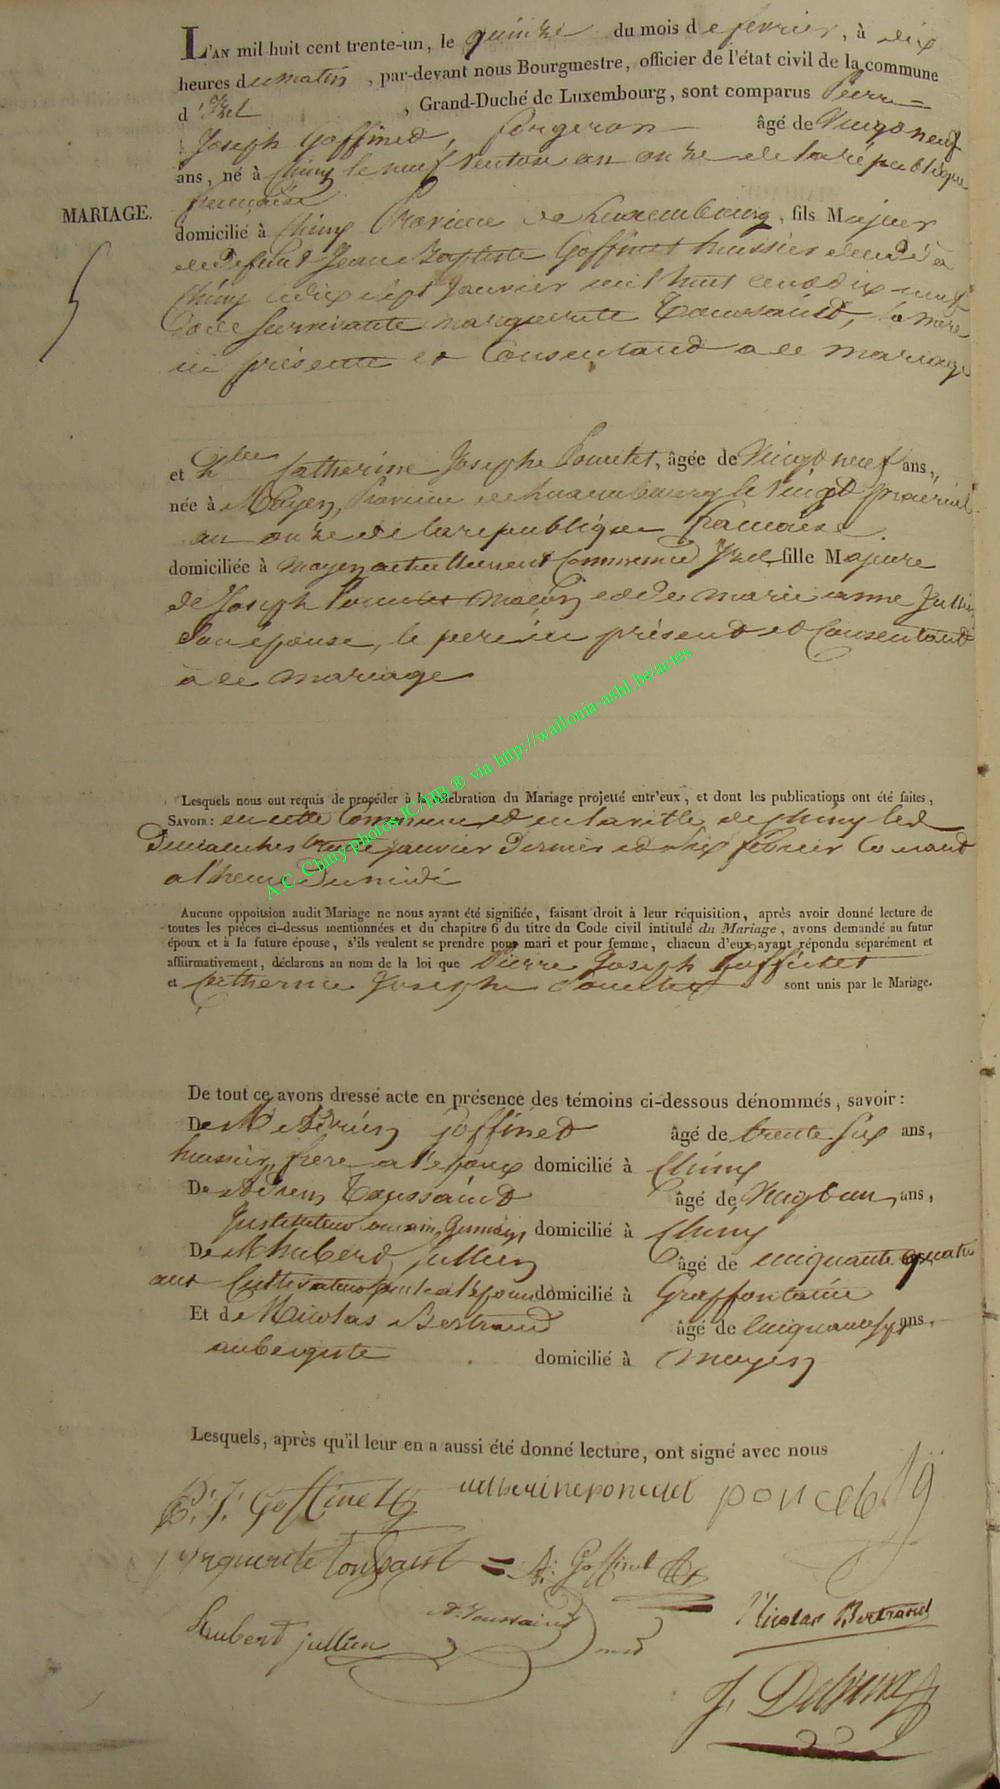 L'AN mil huit cent trente-un, le quinze du mois de février, à dix
heures du matin, par-devant nous Bourgmestre, officier de l'état civil de la commune
d'Izel, Grand-Duché de Luxembourg, sont comparus Pierre =
Joseph Goffinet, forgeron âgé de Vingt neuf
ans, né à Chiny le neuf Ventose an onze de la république
francaise
MARIAGE.
domicilié à Chiny Province de Luxembourg, fils Majeur
de defunt Jean Baptiste Goffinet huissier décédé à
Chiny le dix sept Janvier mil huit cent dix neuf
Et de survivante marguerite Toussaint, sa mère
ici présente et Consentant a ce mariage
et Catherine Josephe Poncelet, âgée de Vingt neuf ans,
née à Moyen Province de Luxembourg le Vingt prairial
an onze de la republique francaise.
domiciliée à moyen actuellement Commune d'Izel fille Majeure
de Joseph Poncelet maçon et de marie anne Jullien
Son épouse, le père ici présent et Consentant
a ce mariage
A.C. Chiny photos JC/HB ® via http://wallonia-asbl.be/actes
Lesquels nous ont requis de procéder à la célébration du Mariage projetté entr'eux, et dont les publications ont été faites,
SAVOIR: en cette Commune et en la ville de Chiny les
Dimanches trente janvier dernier et six février Courant
a l'heure de midi
Aucune oppoitsion audit Mariage ne nous ayant été signifiée, faisant droit à leur réquisition, après avoir donné lecture de
toutes les pièces ci-dessus mentionnées et du chapitre 6 du titre du Code civil intitulé du Mariage, avons demandé au futur
époux et à la future épouse, s'ils veulent se prendre pour mari et pour femme, chacun d'eux ayant répondu séparément et
affiirmativement, déclarons au nom de la loi que Pierre Joseph Goffinet
et Catherine Josephe Poncelet sont unis par le Mariage.
De tout ce avons dressé acte en présence des témoins ci-dessous dénommés, savoir:
De Adrien Goffinet âgé de trente six ans,
huissier, frère a l'epoux domicilié à Chiny
De Adrien Toussaint âgé de Vingt un ans,
Instituteur cousin Germain domicilié à Chiny
De hubert Jullien âgé de cinquante quatre
ans Cultivateur oncle a l'épouse domicilié à Graffontaine
Et de Nicolas Bertrand âgé de Cinquante six ans,
aubergiste domicilié à moyen
Lesquels, après qu'il leur en a aussi été donné lecture, ont signé avec nous
P. J. Goffinet catherine poncelet poncelet J
marguerite Toussaint = A: Goffinet
A. Toussaint Nicolas Bertrand
hubert jullien